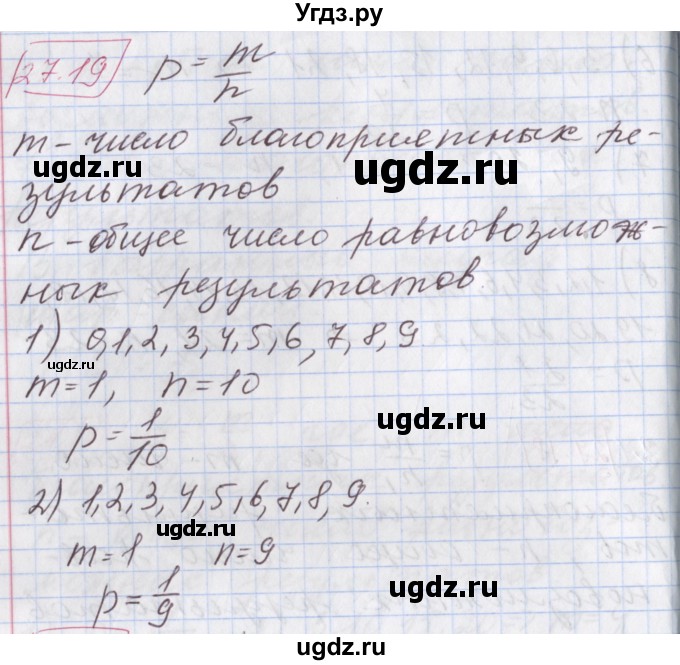 Угдз.ру
27.19 p = m/n
m - число благоприятных ре-
ugdz.ru ugdz.ru
зультатов
n - общее число равновозмож-
ных результатов
1) 0,1,2, 3,4,5,6,7,8,9.
ugdz.ru
m=1, n=10
ugdz.ru
p = 1/10
2) 1,2,3,4,5,6,7,8,9.
ugdz.ru
m=1 n=9
p = 1/9
ugdz.ru ugdz.ru
ugdz.ru